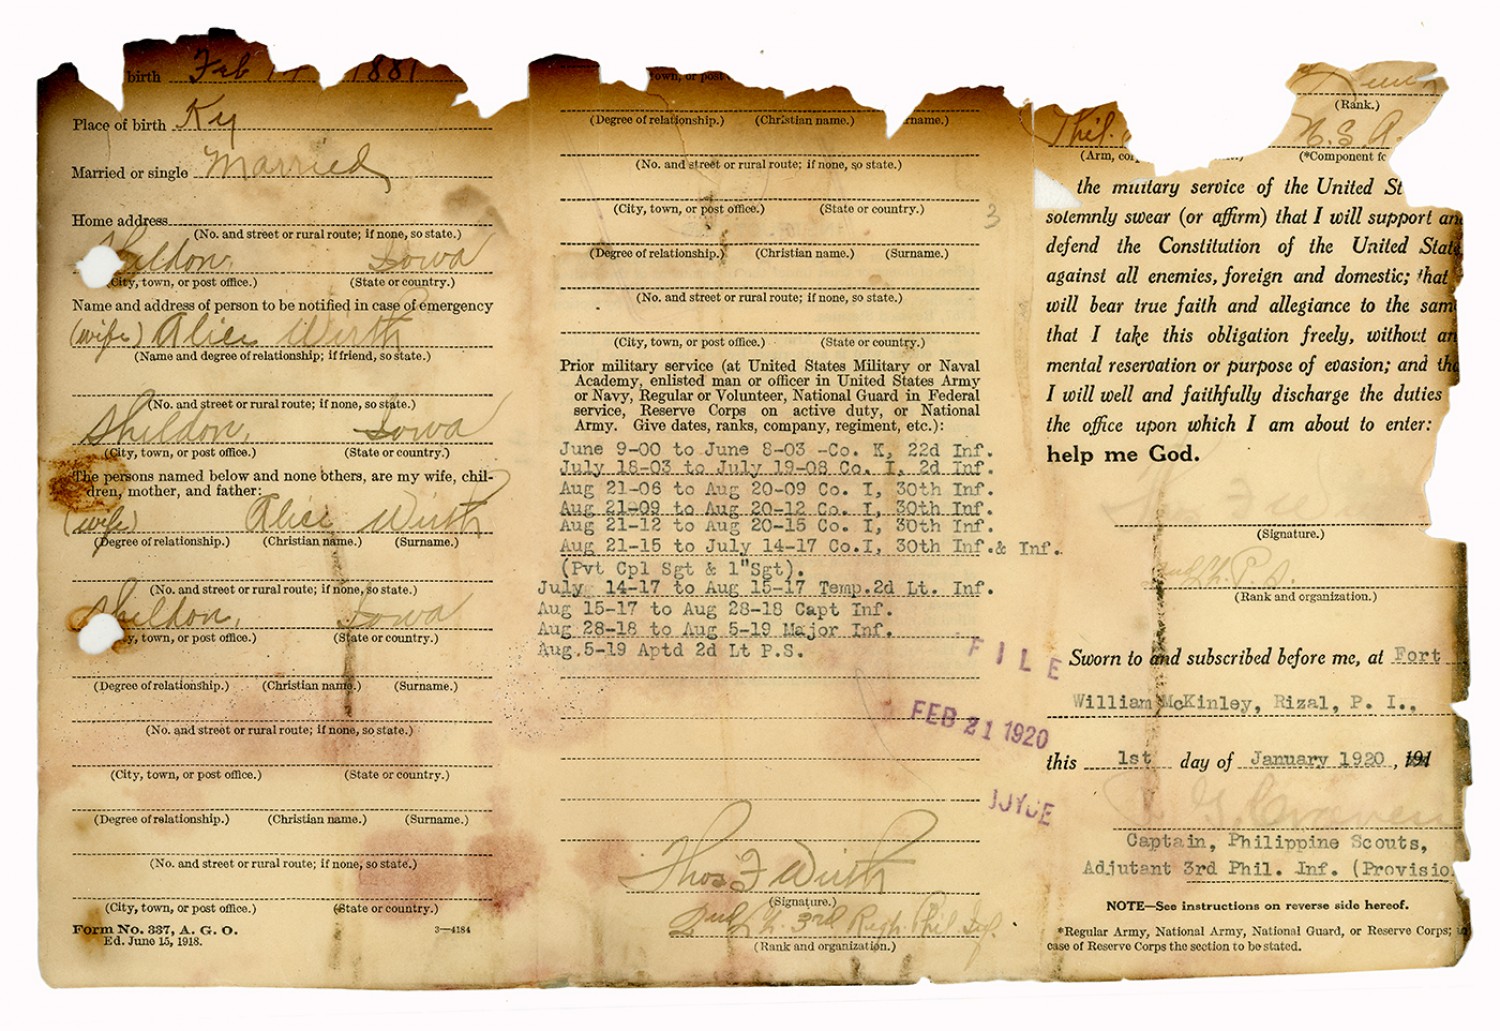 birth Feb 1881
Place of birth Ky
Married or single Married
Home address
(No. and street or rural route; if none, so state.)
Sheldon, Iowa
(City, town, or post office.) (State or country.)
Name and address of person to be notified in case of emergency
(wife) Alice Wirth
(Name and degree of relationship; if friend, so state.)
(No. and street or rural route; if none, so state.)
Sheldon, Iowa
(City, town, or post office.) (State or country.)
The persons named below and none others, are my wife, chil-
dren, mother, and father:
(wife) Alice Wirth
(Degree of relationship.) (Christian name.) (Surname.)
(No. and street or rural route; if none, so state.)
Sheldon, Iowa
y, town, or post office.) (State or country.)
(Degree of relationship.) (Christian name.) (Surname.)
(No. and street or rural route; if none, so state.)
(City, town, or post office.) (State or country.)
(Degree of relationship.) (Christian name.) (Surname.)
(No. and street or rural route; if none, so state.)
(City, town, or post office.) (State or country.)
Form No. 337, A. G. O.
Ed. June 15, 1918.
3—4184
town, or post
(Degree of relationship.) (Christian name.) name.)
(No. and street or rural route; if none, so state.)
(City, town, or post office.) (State or country.)
3
(Degree of relationship.) (Christian name.) (Surname.)
(No. and street or rural route; if none, so state.)
(City, town, or post office.) (State or country.)
Prior military service (at United States Military or Naval
Academy, enlisted man or officer in United States Army
or Navy, Regular or Volunteer, National Guard in Federal
service, Reserve Corps on active duty, or National
Army. Give dates, ranks, company, regiment, etc.):
June 9-00 to June 8-03 -Co. K, 22d Inf.
July 18-03 to July 19-08 Co. I, 2d Inf.
Aug 21-06 to Aug 20-09 Co. I, 30th Inf.
Aug 21-09 to Aug 20-12 Co. I, 30th Inf.
Aug 21-12 to Aug 20-15 Co. I, 30th Inf.
Aug 21-15 to July 14-17 Co.I, 30th Inf.& Inf.
(Pvt Cpl Sgt & 1"Sgt).
July 14-17 to Aug 15-17 Temp.2d Lt. Inf.
Aug 15-17 to Aug 28-18 Capt Inf.
Aug 28-18 to Aug 5-19 Major Inf.
Aug.5-19 Aptd 2d Lt P.S.
FILE
FEB 21 1920
JOYCE
Thos F Wirth
(Signature.)
2nd Lt. 3rd Regt Phil Inf.
(Rank and organization.)
(Rank.)
Phil. U.S.A.
(Arm, co (*Component fo
the military service of the United St
solemnly swear (or affirm) that I will support an
defend the Constitution of the United State
against all enemies, foreign and domestic; that
will bear true faith and allegiance to the sam
that I take this obligation freely, without an
mental reservation or purpose of evasion; and tha
I will well and faithfully discharge the duties
the office upon which I am about to enter:
help me God.
(Signature.)
2nd Lt. P.S.
(Rank and organization.)
Sworn to and subscribed before me, at Fort
William McKinley, Rizal, P. I.,
this 1st day of January 1920, 191
Craven
Captain, Philippine Scouts,
Adjutant 3rd Phil. Inf. (Provisio
NOTE—See instructions on reverse side hereof.
*Regular Army, National Army, National Guard, or Reserve Corps; in
case of Reserve Corps the section to be stated.